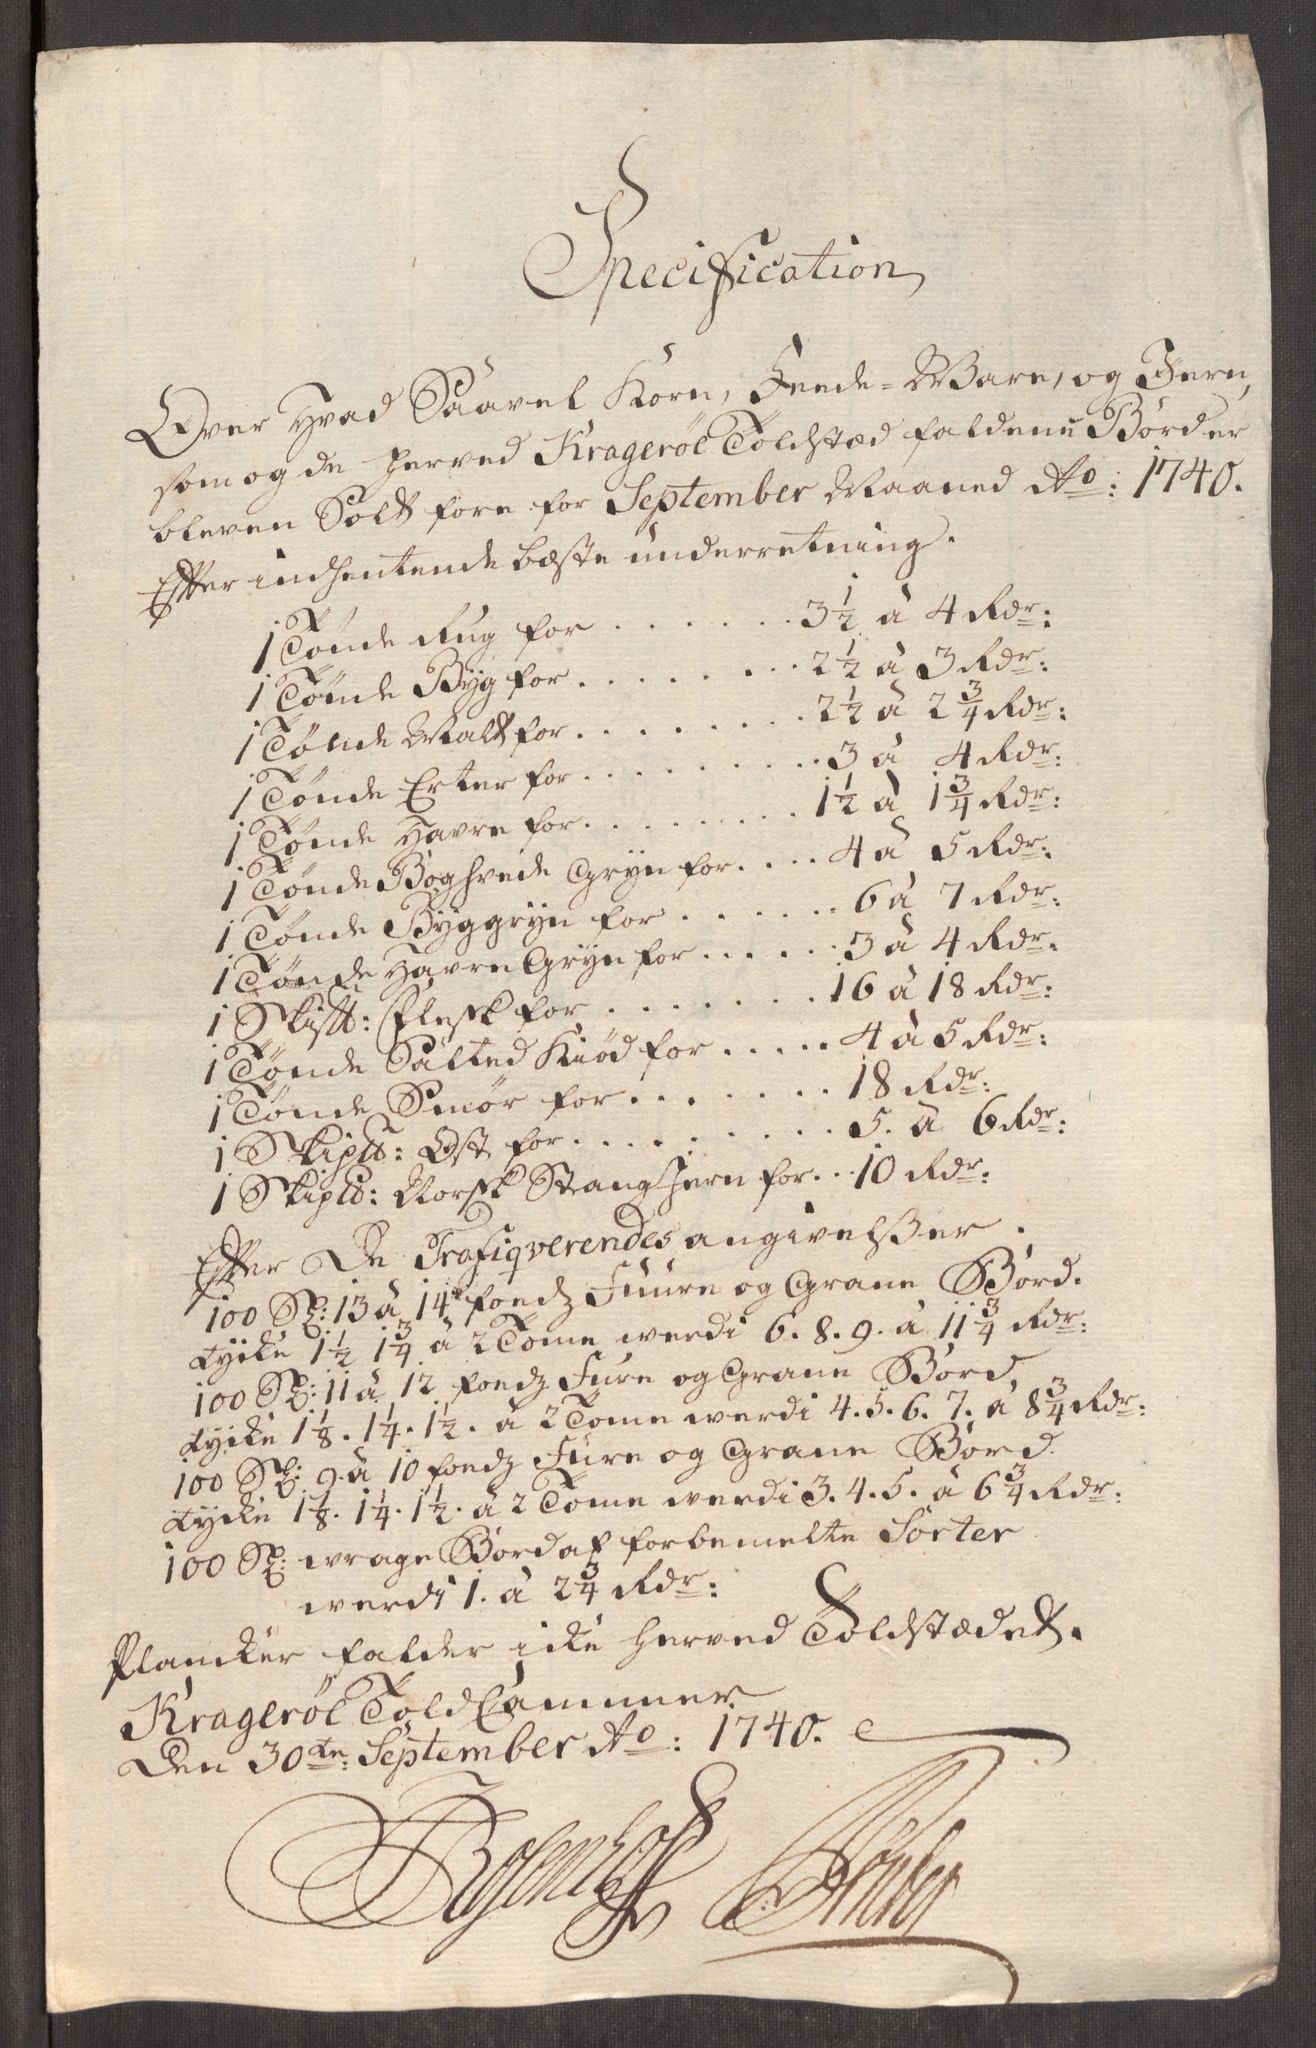 Specification
Over Hvad Saavel Korn, Feede-Ware, og Jern,
som og de herved Krageröe Toldstæd faldene Börder
bleven Solt fore for September Maaned Ao: 1740.
Efter indhentende beste underretning.
1 Tönde Rug for . . . . . . 3½ á 4 Rdr:
1 Tönde Byg for . . . . . . . 2½ á 3 Rdr:
1 Tönde Malt for . . . . . . . 2½ á 2¾ Rdr:
1 Tönde Erter for . . . . . . . . 3 á 4 Rdr:
1 Tönde Havre for . . . . . . . 1½ á 1¾ Rdr:
1 Tönde Boghvede Gryn for . . . . 4 á 5 Rdr:
1 Tönde Byggryn for . . . . . . 6 á 7 Rdr:
1 Tönde Havre Gryn for . . . . . 3 á 4 Rdr:
1 Skipt: Flesk for . . . . . . . 16 á 18 Rdr:
1 Tönde Salted Kiöd for . . . . . 4 á 5 Rdr:
1 Tönde Smör for . . . . . . . 18 Rdr:
1 Skipld: Ost for . . . . . . . . 5. á 6 Rdr:
1 Skipld: Norsk Stang Jern for . . 10 Rdr:
Efter De Trafiqverendes angivelßer.
100 St: 13 á 14 foedz Fuure og Grane Bord.
tycke 1½ 1¾ á 2 Tome werdi 6. 8. 9. á 11¾ Rdr:
100 St: 11 á 12 foedz Fure og Grane Bord,
tycke 1⅛. 1¼. 1½. á 2 Tome werdi 4. 5. 6. 7. á 8¾ Rdr:
100 St: 9. á 10 foedz Fure og Grane Bord.
tycke 1⅛. 1¼. 1½. á 2 Tome werdi 3. 4. 5. á 6¾ Rdr:
100 St: wrage Bord af forbemelte Sorter
werdi 1. á 2¾ Rdr:
Plancker falder icke herved Toldstædet.
Krageröe Told Cammer
Den 30te: September Ao: 1740.